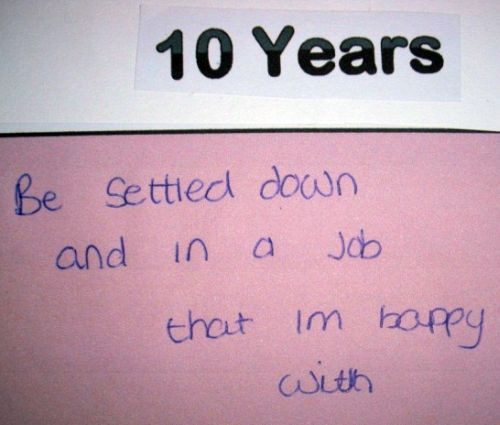 10 Years
Be settled down
and in a Job
that Im happy
with